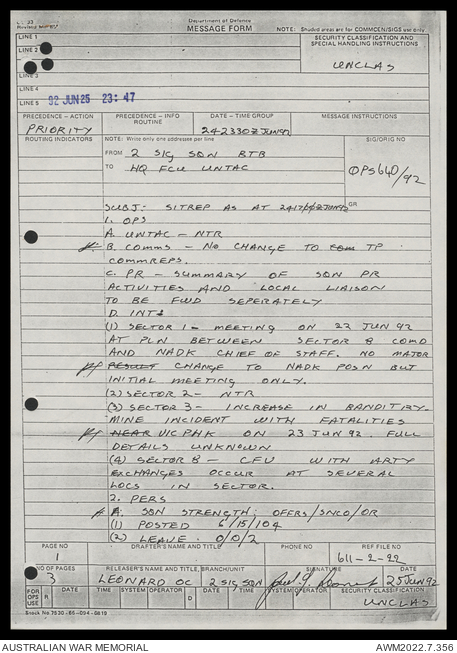 Department of Defence
MESSAGE FORM
NOTE: Shaded areas are for COMMCEN/SIGS use only
LINE 1
SECURITY CLASSIFICATION AND
SPECIAL HANDLING INSTRUCTIONS
LINE 2
UNCLAS
LINE 3
LINE 4
LINE 5 92 JUN 25 23:47
PRECEDENCE – ACTION
PRECEDENCE – INFO
ROUTINE
DATE – TIME GROUP
MESSAGE INSTRUCTIONS
PRIORITY
242330Z JUN 92
ROUTING INDICATORS
NOTE: Write only one addressee per line
SIG/ORIG NO
FROM 2 SIG SQN RTB
TO HQ FCU UNTAC
OPS640/92
GR
SUBJ: SITREP AS AT JUN 92
1. OPS
A. UNTAC – NTR
B. COMMS – NO CHANGE TO TP
COMMREPS.
C. PR – SUMMARY OF SQN PR
ACTIVITIES AND LOCAL LIAISON
TO BE FWD SEPERATELY
D. INT:
(1) SECTOR 1 – MEETING ON 22 JUN 92
AT PLN BETWEEN SECTOR 8 COMD
AND NADK CHIEF OF STAFF. NO MAJOR
RESULT CHANGE TO NADK POSN BUT
INITIAL MEETING ONLY.
(2) SECTOR 2 – NTR
(3) SECTOR 3 – INCREASE IN BANDITRY.
MINE INCIDENT WITH FATALITIES
NEAR VIC PNK ON 23 JUN 92. FULL
DETAILS UNKNOWN
(4) SECTOR 8 – CFV WITH ARTY
EXCHANGES OCCUR AT SEVERAL
LOCS IN SECTOR.
2. PERS
A. SQN STRENGTH; OFFRS/SNCO/OR
(1) POSTED 6/15/104
(2) LEAVE 0/0/2
PAGE NO
1
DRAFTER'S NAME AND TITLE
PHONE NO
REF FILE NO
611-2-22
NO OF PAGES
3
RELEASER'S NAME AND TITLE, BRANCH/UNIT
LEONARD OC 2 SIG SQN
SIGNATURE
DATE
25 JUN 92
FOR
OPS
USE
R
DATE
TIME
SYSTEM
OPERATOR
D
DATE
TIME
SYSTEM
OPERATOR
SECURITY CLASSIFICATION
UNCLAS
Stock No 7530-66-094-0819
AUSTRALIAN WAR MEMORIAL
AWM2022.7.356